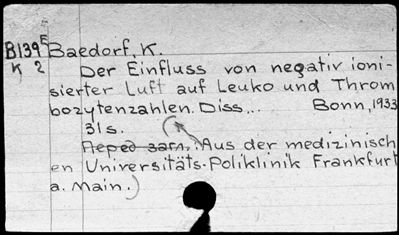 B139E Baedorf, K.
K 2 Der Einfluss von negativ ioni-
sierter Luft auf Leuko und Throm
bozytenzahlen. Diss... Bonn, 1933
31s.
(Aus der medizinisch
en Universitäts-Poliklinik Frankfurt
a. Main.)